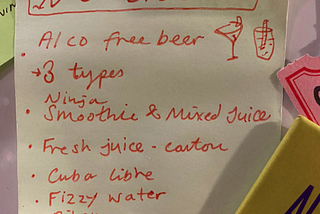 Alco free beer
→3 types
Ninja
Smoothie & Mixed Juice
Fresh juice - carton
Cuba libre
Fizzy water